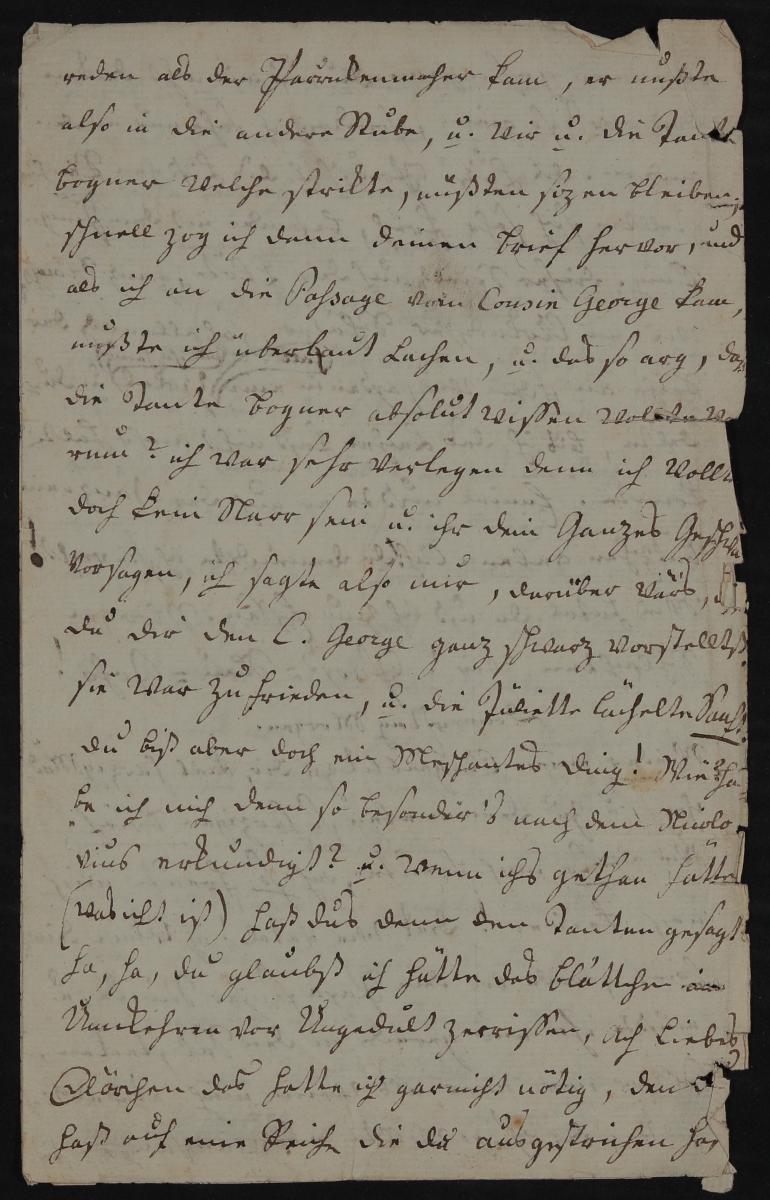 reden als der Parrukenmacher kam, er mußte
also in die andere Stube, u. wir u. die Tante
bogner welche strikte, mußten sizen bleiben,
schnell zog ich denn deinen brief hervor, und
als ich an die Passage vom Cousin George kam,
mußte ich überlaut Lachen, u. das so arg, daß
die Tante bogner absolut wissen wollte wa
rum? ich war sehr verlegen denn ich wollt
doch kein Narr sein u. ihr dein Ganzes Geschw
vorsagen, ich sagte also nur, darüber wärs,
du dir den C. George ganz schwarz vorstellst
sie war zufrieden, u. die Juliette lächelte Sanft.
du bist aber doch ein Meschantes ding! Wie? ha
be ich mich denn so besonder's nach dem Nicolo
vius erkundigt? u. wenn ichs gethan hätte
(was nicht ist) hast dus denn den Tanten gesagt
ha, ha, du glaubst ich hätte das blättchen im
Umkehren vor Ungedult zerrissen, ach Liebes
Clärchen das hatte ich garnicht nötig, den d
hast auf eine Reihe die du ausgestrichen has